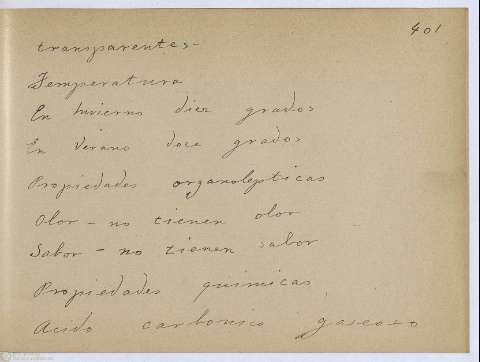 401
transparentes-
Temperatura
En Invierno diez grados
En Verano doce grados
Propiedades organolepticas
Olor - no tienen olor
Sabor - no tienen sabor
Propiedades quimicas
Acido carbonico gaseoso